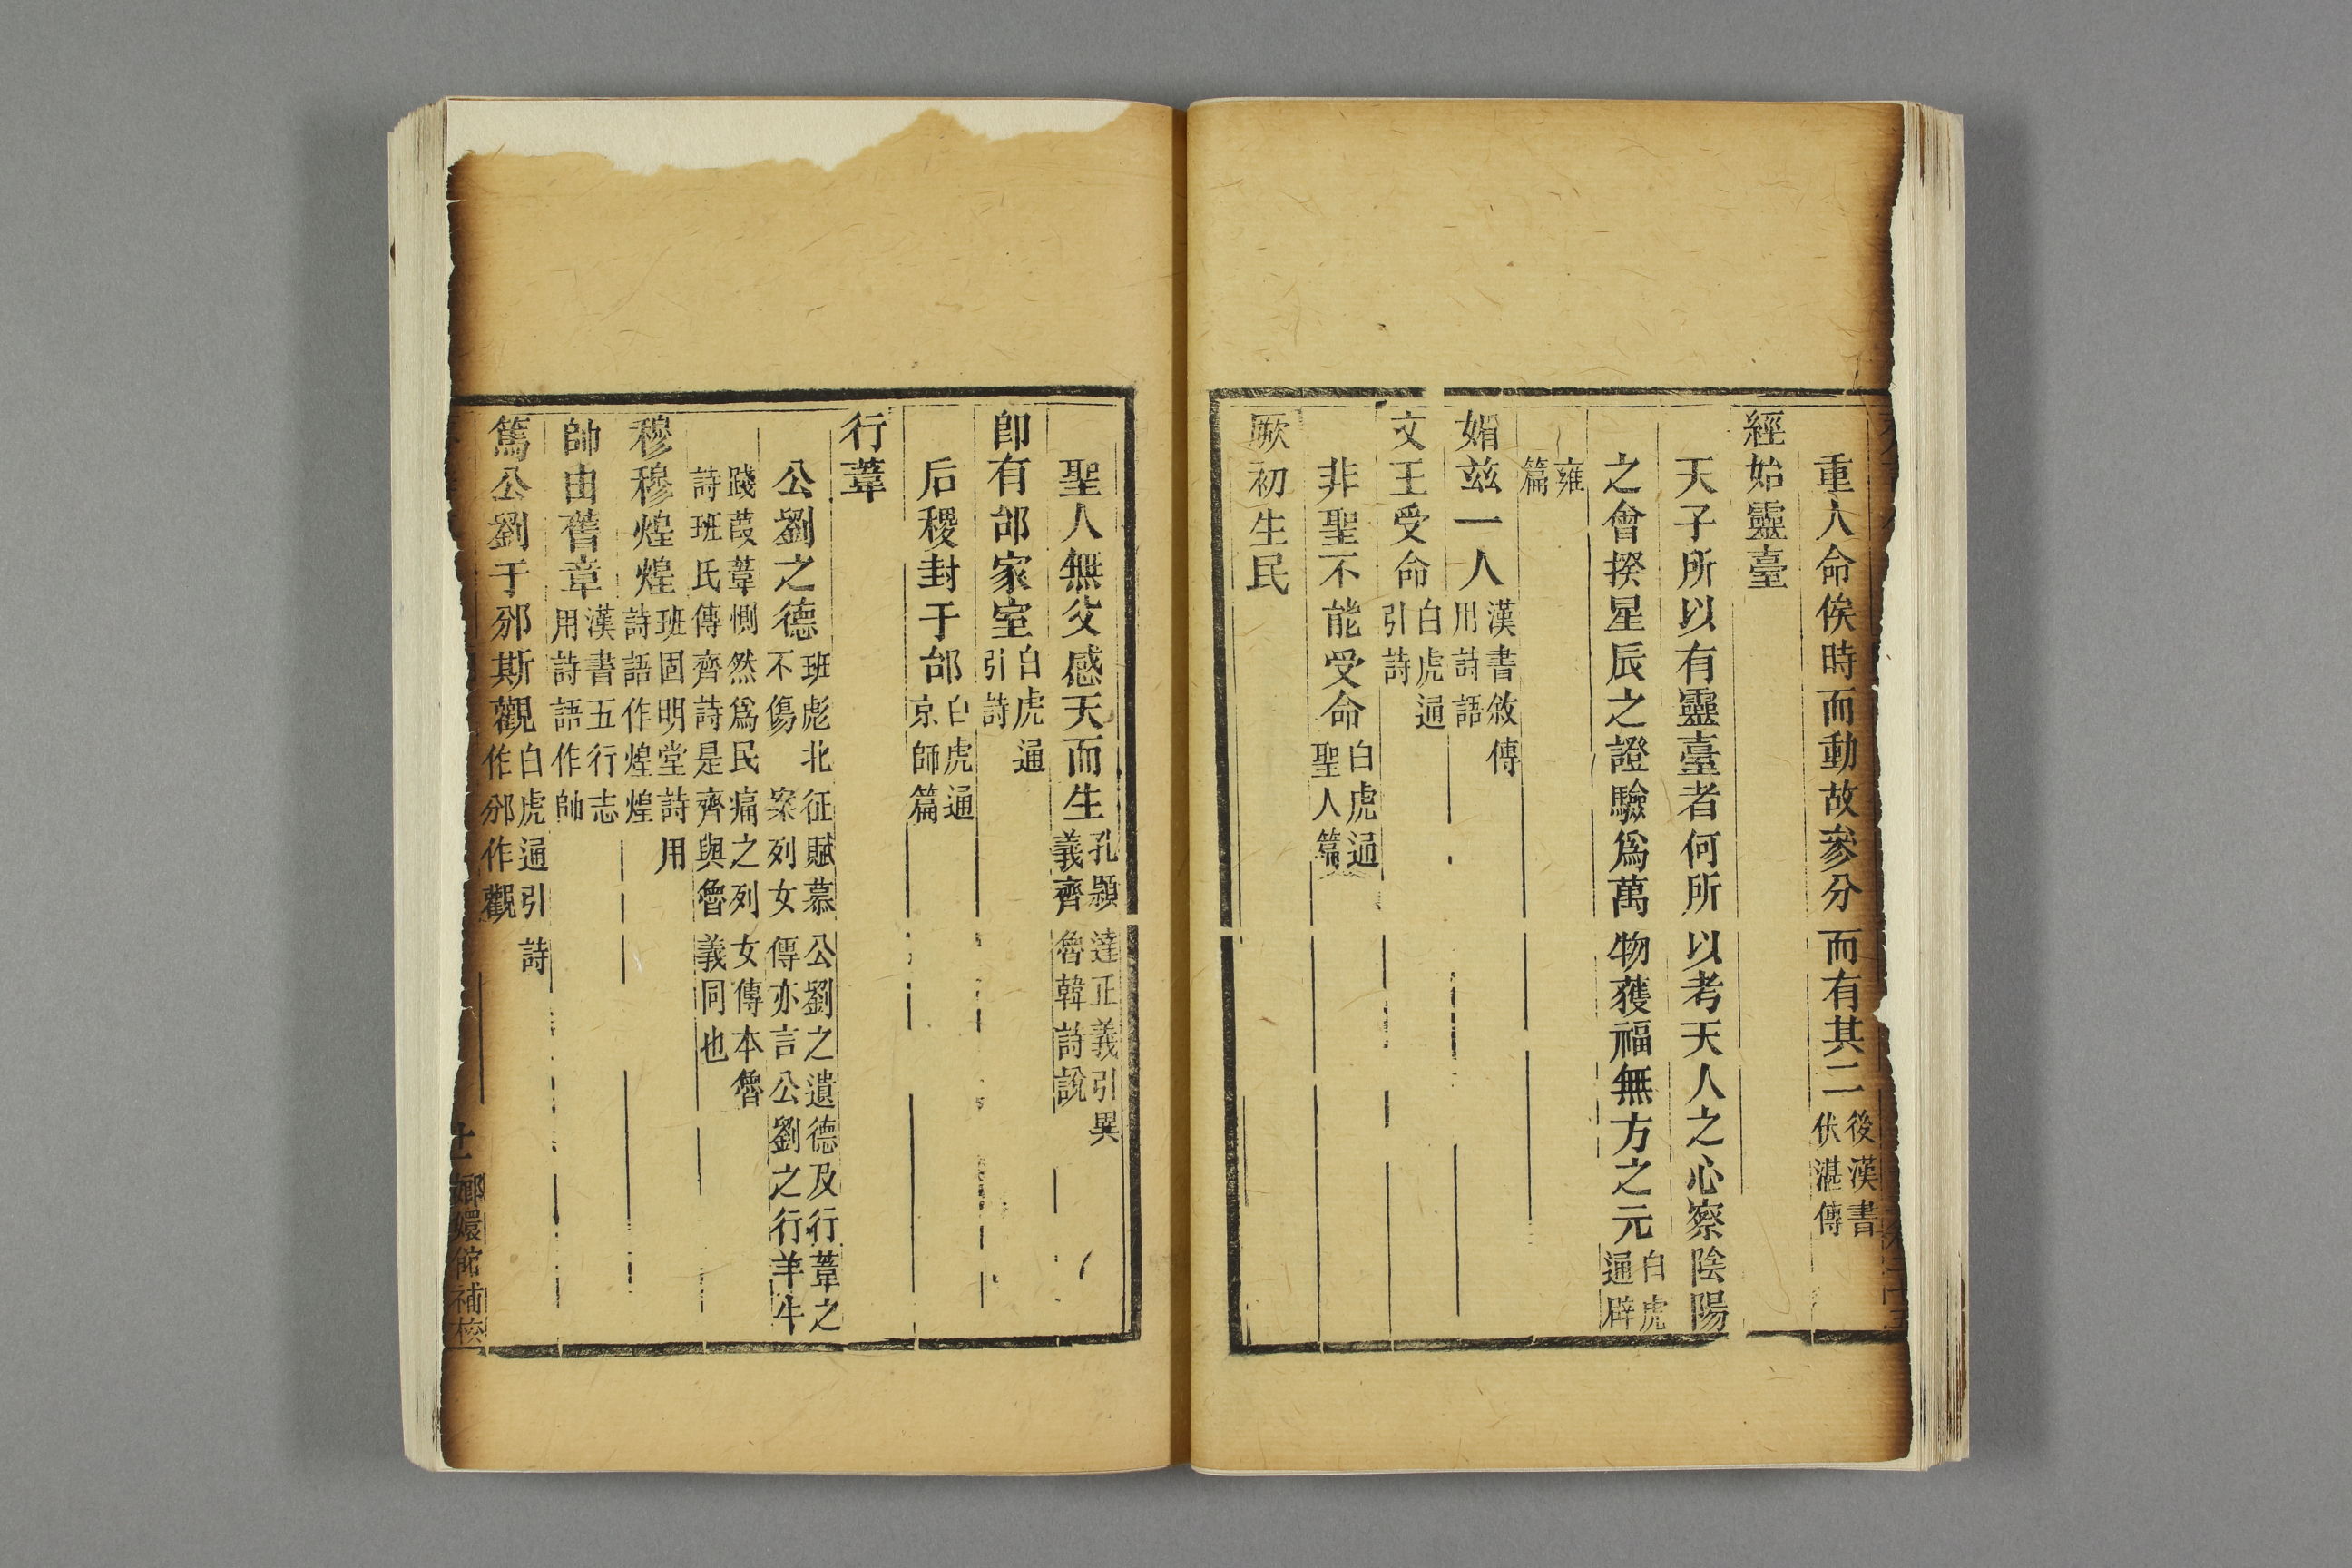 重人命俟時而動故參分而有其二後漢書伏湛傳
經始靈臺
天子所以有靈臺者何所以考天人之心察陰陽
之會揆星辰之證驗爲萬物獲福無方之元白虎通辟
雍篇
媚兹一人漢書敘傳用詩語
文王受命白虎通引詩
非聖不能受命白虎通聖人篇
厥初生民
聖人無父感天而生孔顥達正義引異義齊魯韓詩說
卽有邰家室白虎通引詩
后稷封于邰白虎通京師篇
行葦
公劉之德班彪北征賦慕公劉之遺德及行葦之不傷案列女傳亦言公劉之行羊牛
踐葭葦惻然爲民痛之列女傳本魯詩班氏傳齊詩是齊與魯義同也
穆穆煌煌班固明堂詩用詩語作煌煌
帥由舊章漢書五行志用詩語作帥
篤公劉于邠斯觀白虎通引詩作邠作觀
嫏嬛館補校